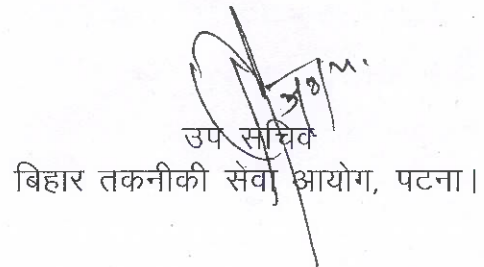 उप सचिव
बिहार तकनीकी सेवा आयोग, पटना।